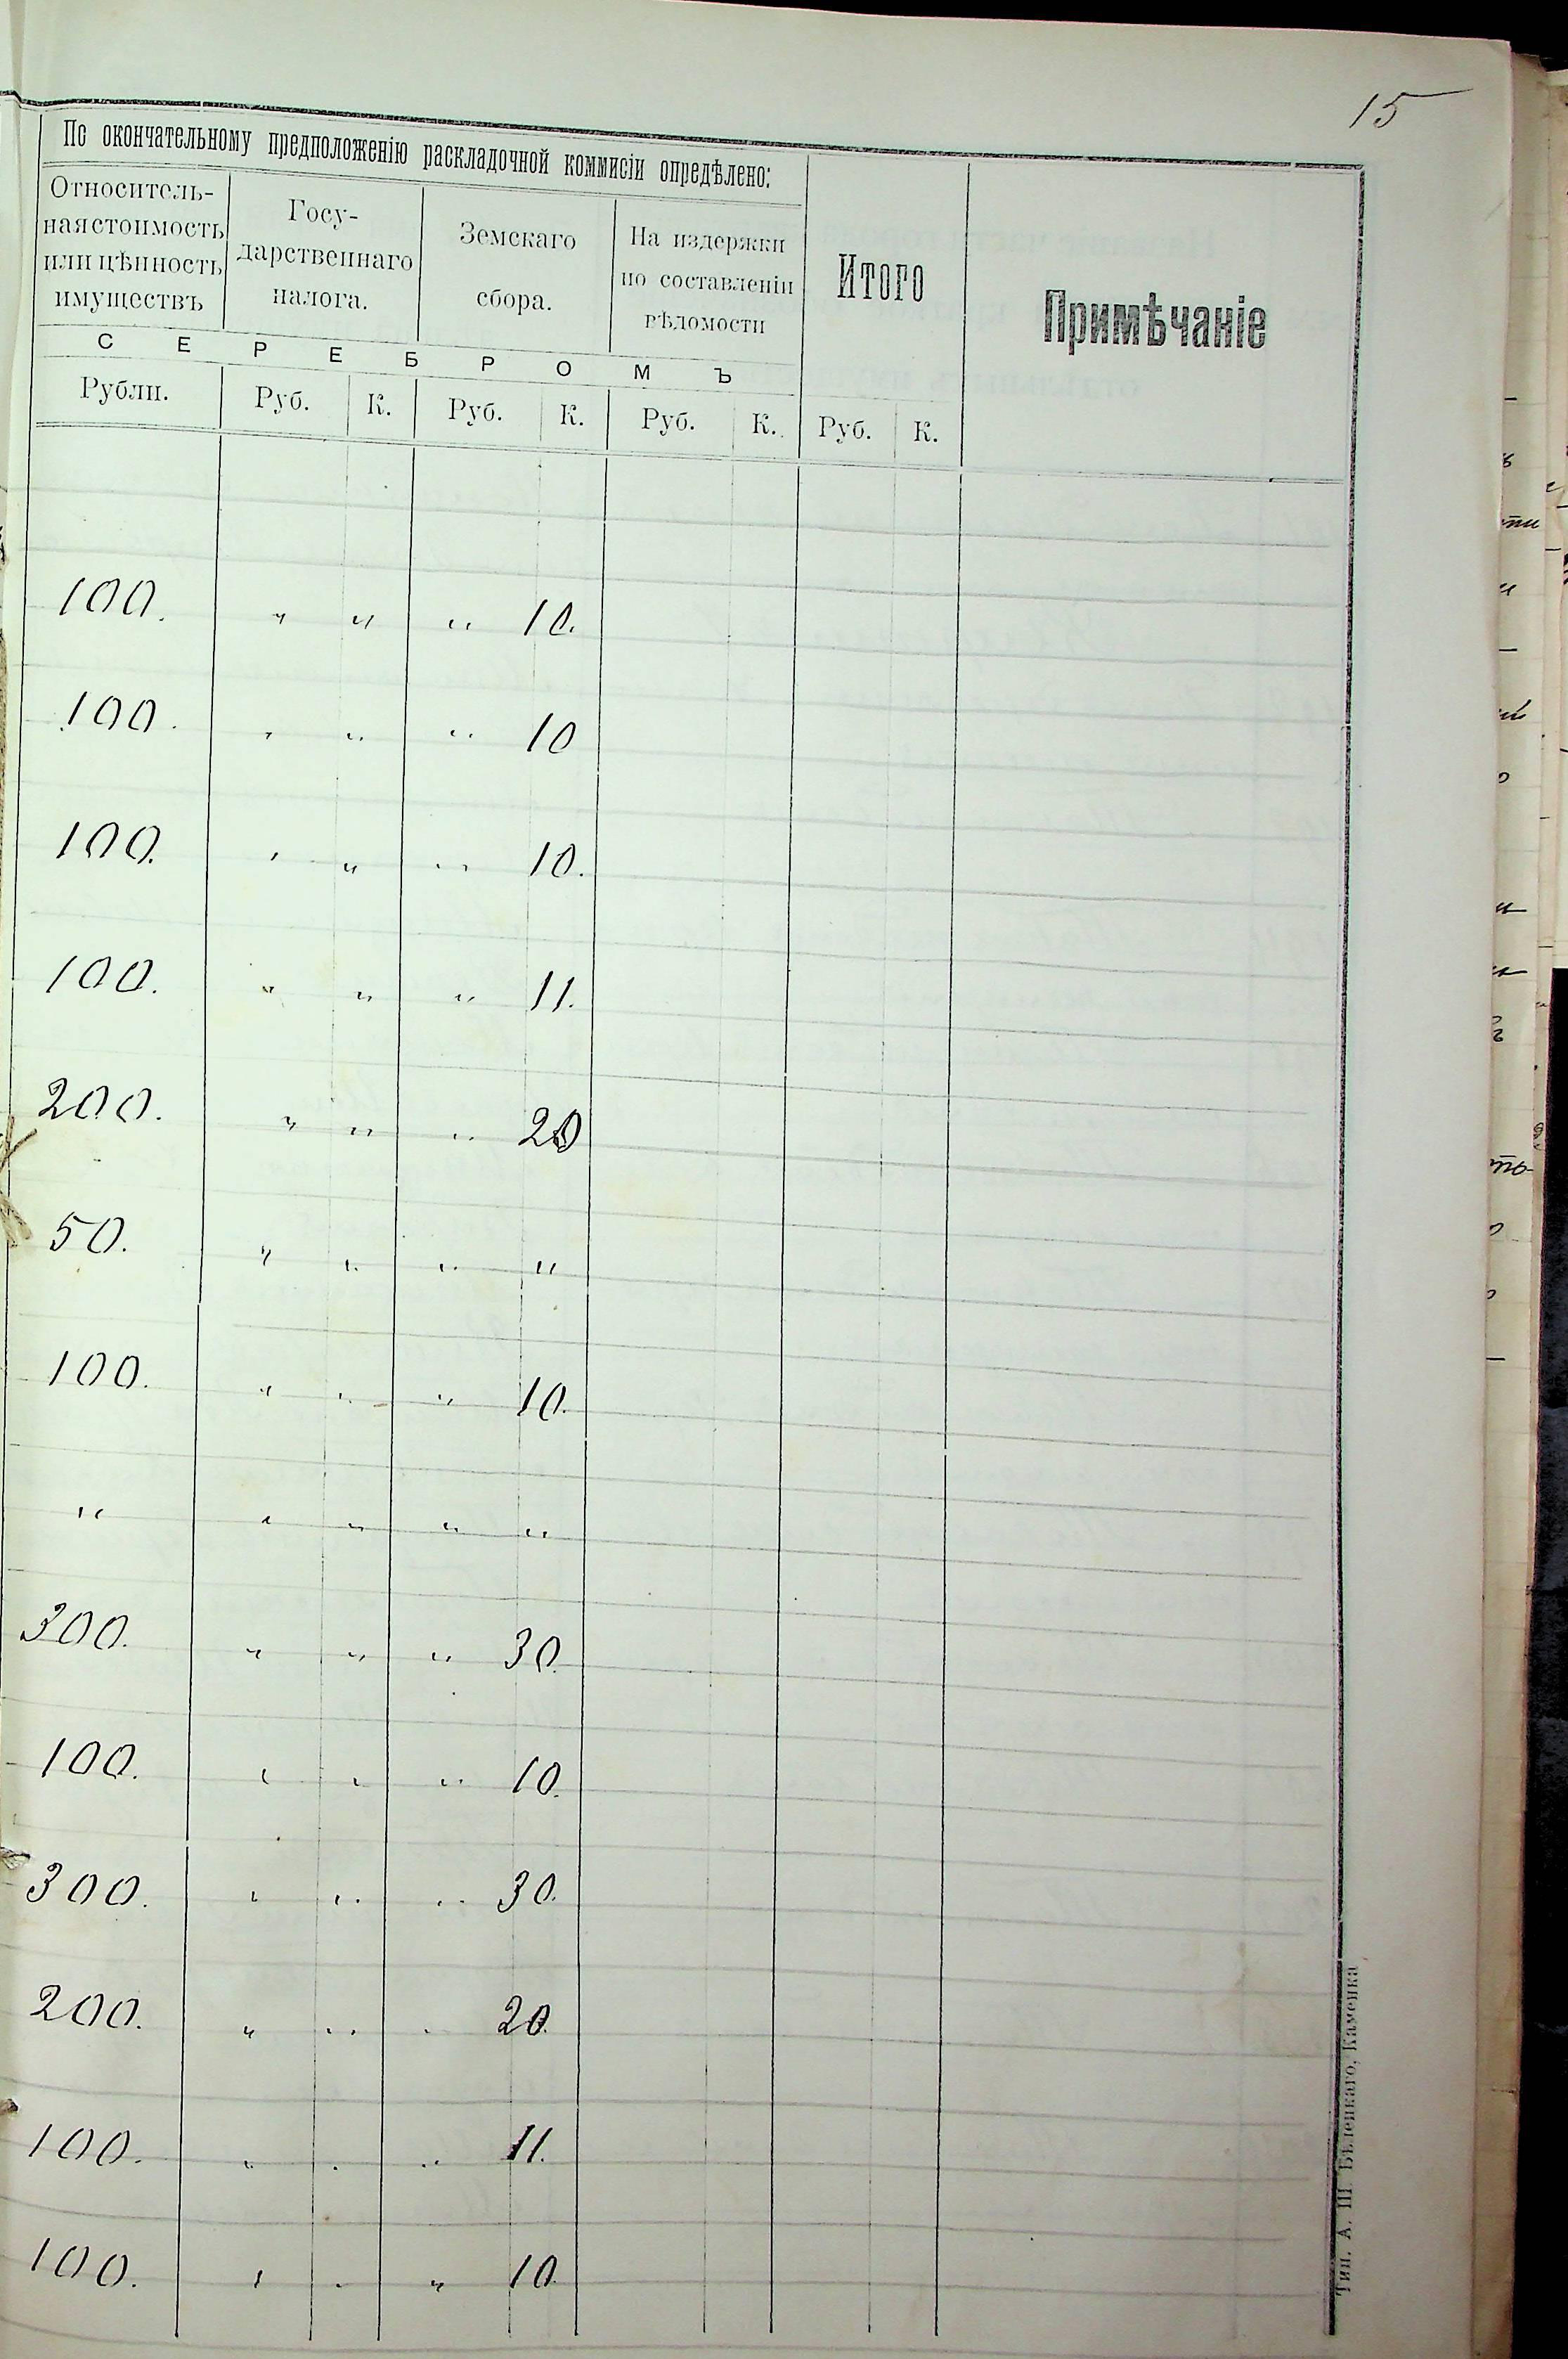 15
По окончательному предположенію раскладочной коммисіи опредѣлено:
Относитель-
ная стоимость
или цѣнность
имуществъ
Госу-
дарственнаго
налога.
Земскаго
сбора.
На издержки
по составленіи
вѣдомости
Итого
Примѣчаніе
СЕРЕБРОМЪ
Рубли. Руб. К. Руб. К. Руб. К. Руб. К.
100. " " " 10.
100. " " " 10
100. " " " 10.
100. " " " 11.
200. " " " 20
50. " " " "
100. " " " 10.
" " " " "
300. " " " 30.
100. " " " 10.
300. " " " 30.
200. " " " 20.
100. " " " 11.
100. " " " 10.
Тип. А. Ш. Бѣленкаго, Каменка